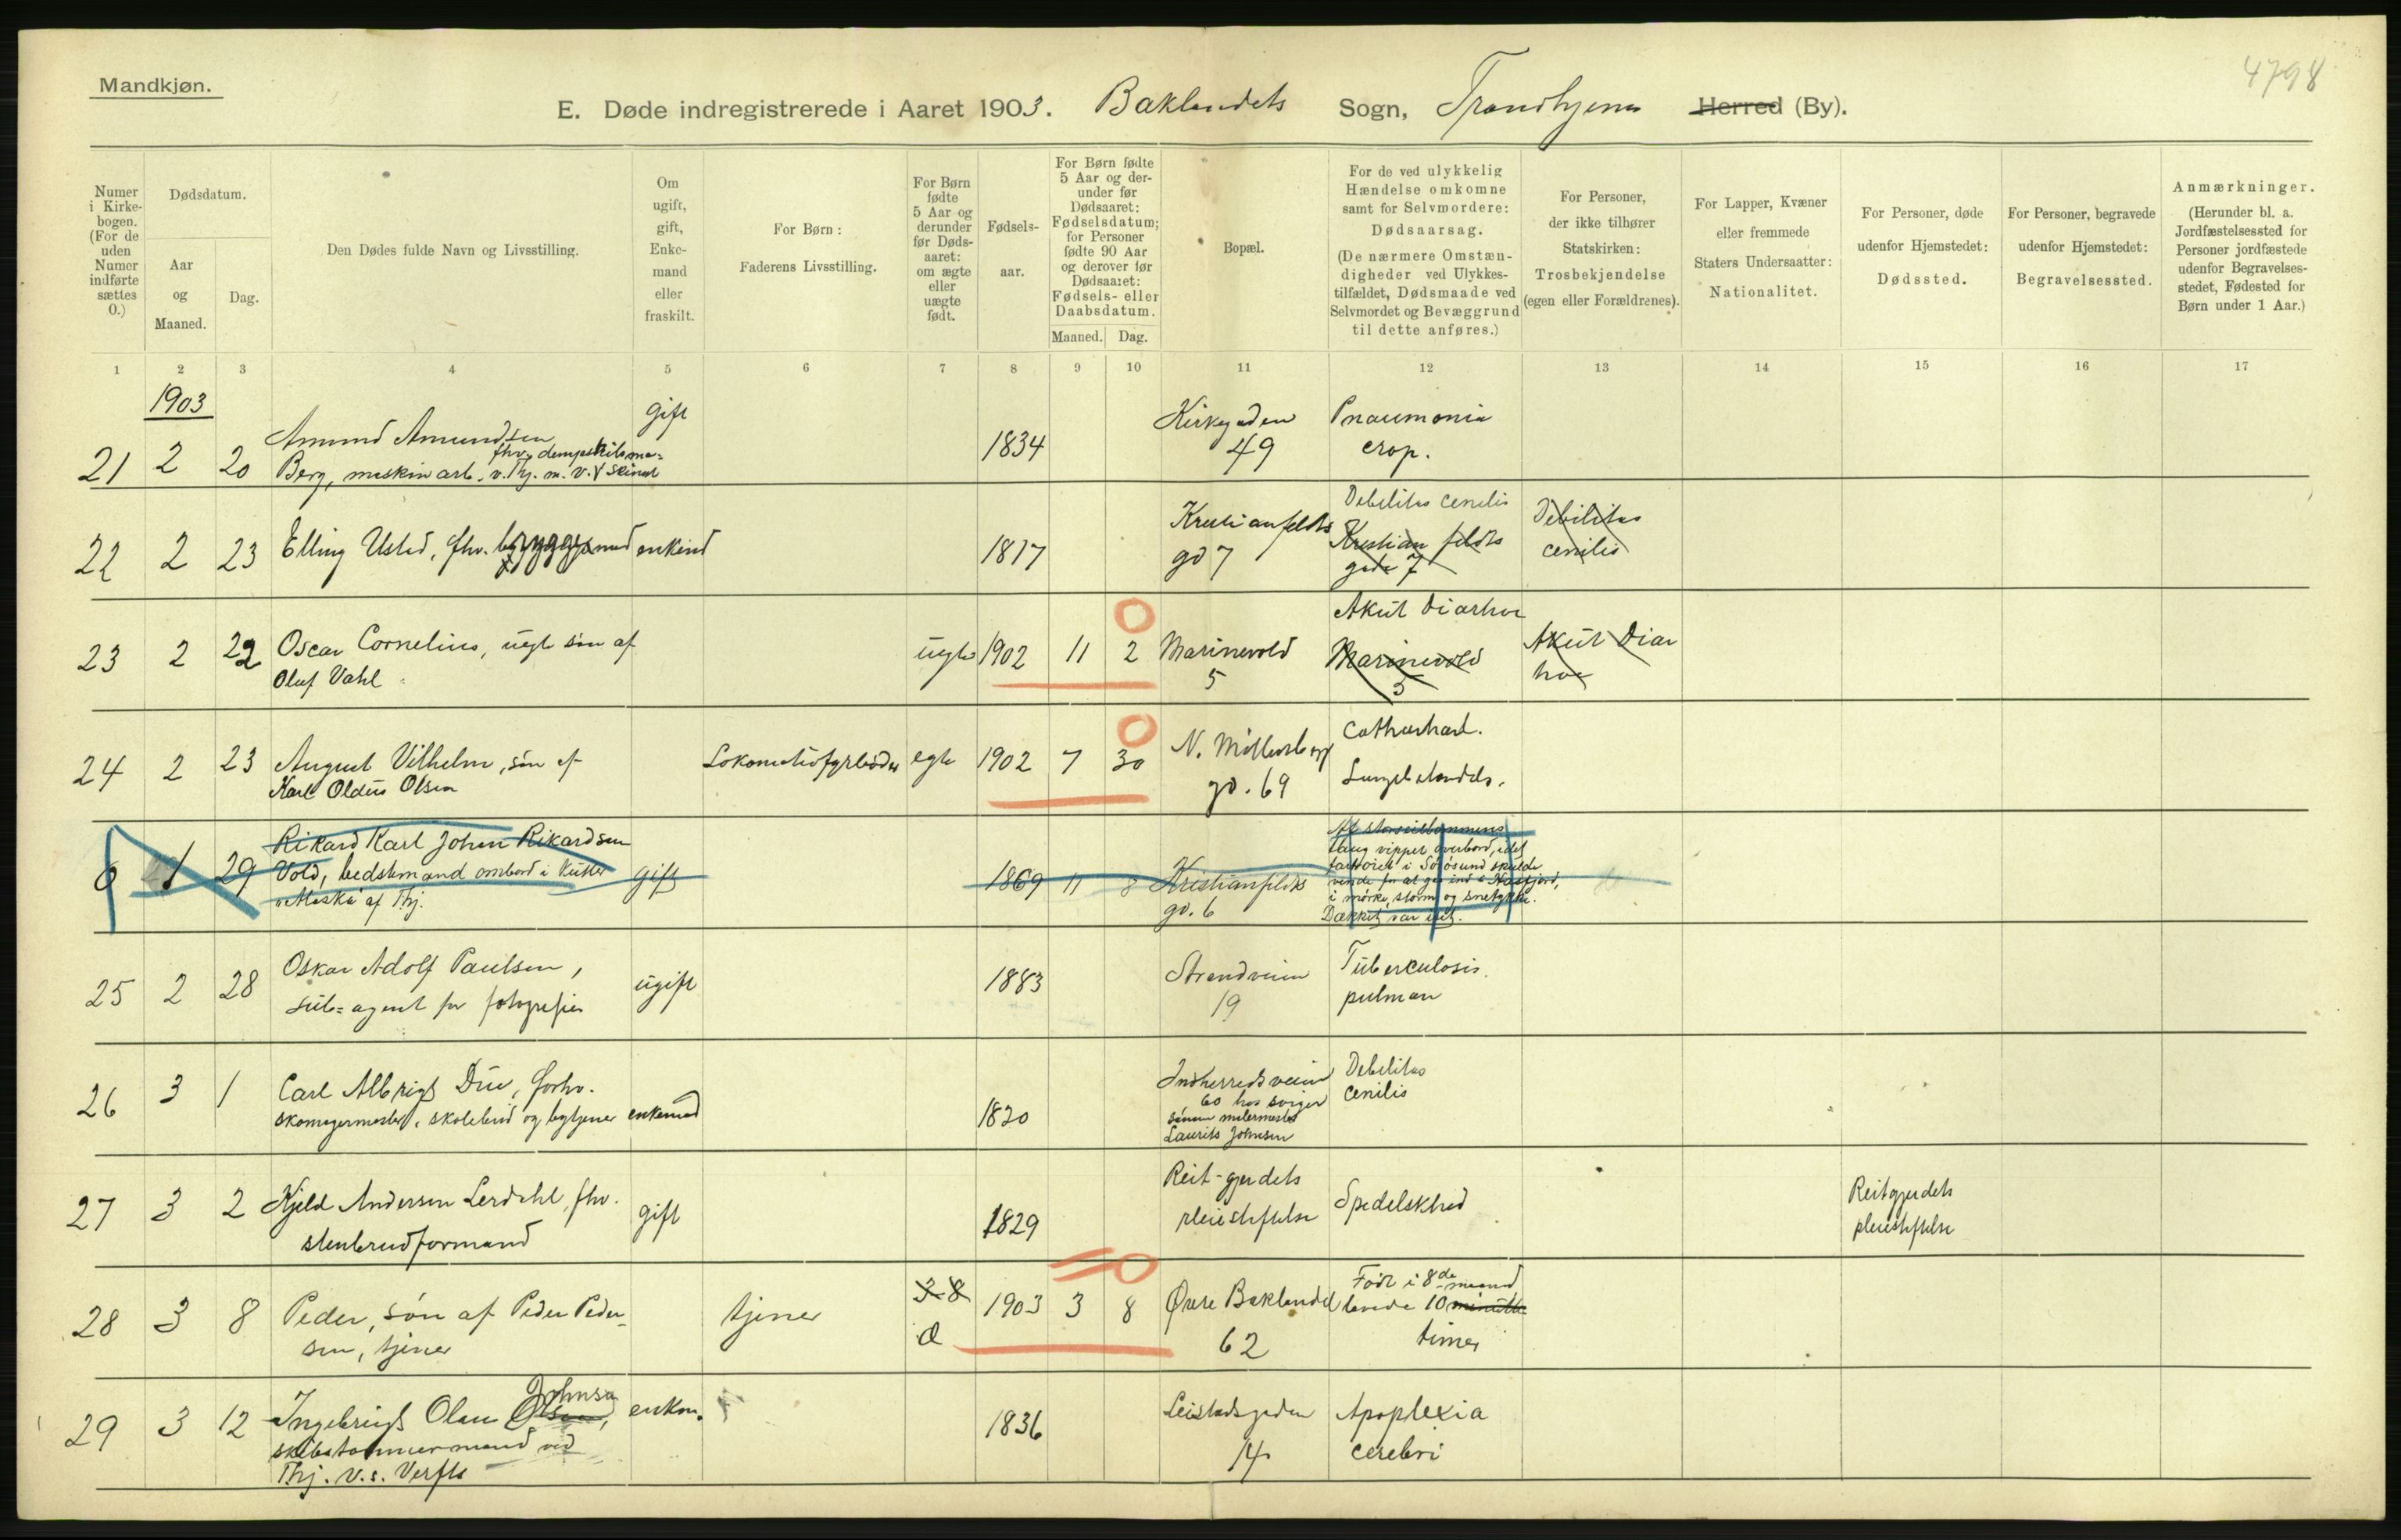 Mandkjøn.
4798
E. Døde indregistrerede i Aaret 1903. Baklandets Sogn, Trondhjems Herred (By).
Numer i Kirkebogen. (For de uden Numer indførte sættes 0.)
Dødsdatum.
Aar og Maaned.
Dag.
Den Dødes fulde Navn og Livsstilling.
Om ugift, gift, Enkemand eller fraskilt.
For Børn: Faderens Livsstilling.
For Børn fødte 5 Aar og derunder før Dødsaaret: om ægte eller uægte født.
Fødselsaar.
For Børn fødte 5 Aar og derunder før Dødsaaret: Fødselsdatum; for Personer fødte 90 Aar og derover før Dødsaaret: Fødsels- eller Daabsdatum.
Maaned. Dag.
Bopæl.
For de ved ulykkelig Hændelse omkomne samt for Selvmordere: Dødsaarsag. (De nærmere Omstændigheder ved Ulykkestilfældet, Dødsmaade ved Selvmordet og Bevæggrund til dette anføres.)
For Personer, der ikke tilhører Statskirken: Trosbekjendelse (egen eller Forældrenes).
For Lapper, Kvæner eller fremmede Staters Undersaatter: Nationalitet.
For Personer, døde udenfor Hjemstedet: Dødssted.
For Personer, begravede udenfor Hjemstedet: Begravelsessted.
Anmærkninger. (Herunder bl. a. Jordfæstelsessted for Personer jordfæstede udenfor Begravelsesstedet, Fødested for Børn under 1 Aar.)
1 2 3 4 5 6 7 8 9 10 11 12 13 14 15 16 17
1903
21 2 20 Amund Amundsen Berg, maskinarb. v. Thj. m. v. fhv. gift 1834 Kirkegaden 49 Pnaumonia crop.
22 2 23 Elling Usted, fhv. enkem 1817 Kristianfeldts gd 7 Debilitas cenilis Kristianfeldts gade 7 Debilitas cenilis
23 2 22 Oscar Cornelius, uegt søn af Oluf Vahl uegte 1902 11 2 Marinevold 5 Akut Diarhoe Marinevold 5 Akut Diarhoe
24 2 23 August Vilhelm, søn af Karl Oldus Olsen Lokomotivfyrbøder egte 1902 7 30 N. Møllenberg gd. 69 Catharhal. Lungebetændels.
0 1 29 Rikard Karl Johan Rikardsen Vold, bedstmand ombord i Kutter "Alaska" af Thj. gift 1869 11 8 Kristianfeldts gd. 6 Af storseilbommens taug vippet overbord, idet fartøiet i Sørøsund skulde vende for at gaa ind i Hasfjord, i mørke, storm og snetykke. Dækket var iset.
25 2 28 Oskar Adolf Paulsen, sub=agent for fotografier ugift 1883 Strandveien 19 Tuberculosis. pulman
26 3 1 Carl Albrigt Due, forhv. skomagermester, skolebud og bytjener enkemand 1820 Indherredsveien 60 hos svigersønnen malermester Laurits Johnsen Debilitas cenilis
27 3 2 Kjeld Andersen Lerdahl, fhv. stenbrudformand gift 1829 Reitgjerdets pleiestiftelse Spedelskhed Reitgjerdets pleiestiftelse
28 3 8 Peder, søn af Peder Pedersen, tjener tjener 3 8 d 1903 3 8 Øvre Baklandet 62 Født i 8de maaned levede 10 minutter timer
29 3 12 Ingebrigt Olaus Olsen, Johnsen skibstømmermand ved Thj. v. s. Verfts enkem. 1836 Leistadsgaden 14 Apoplexia cerebri